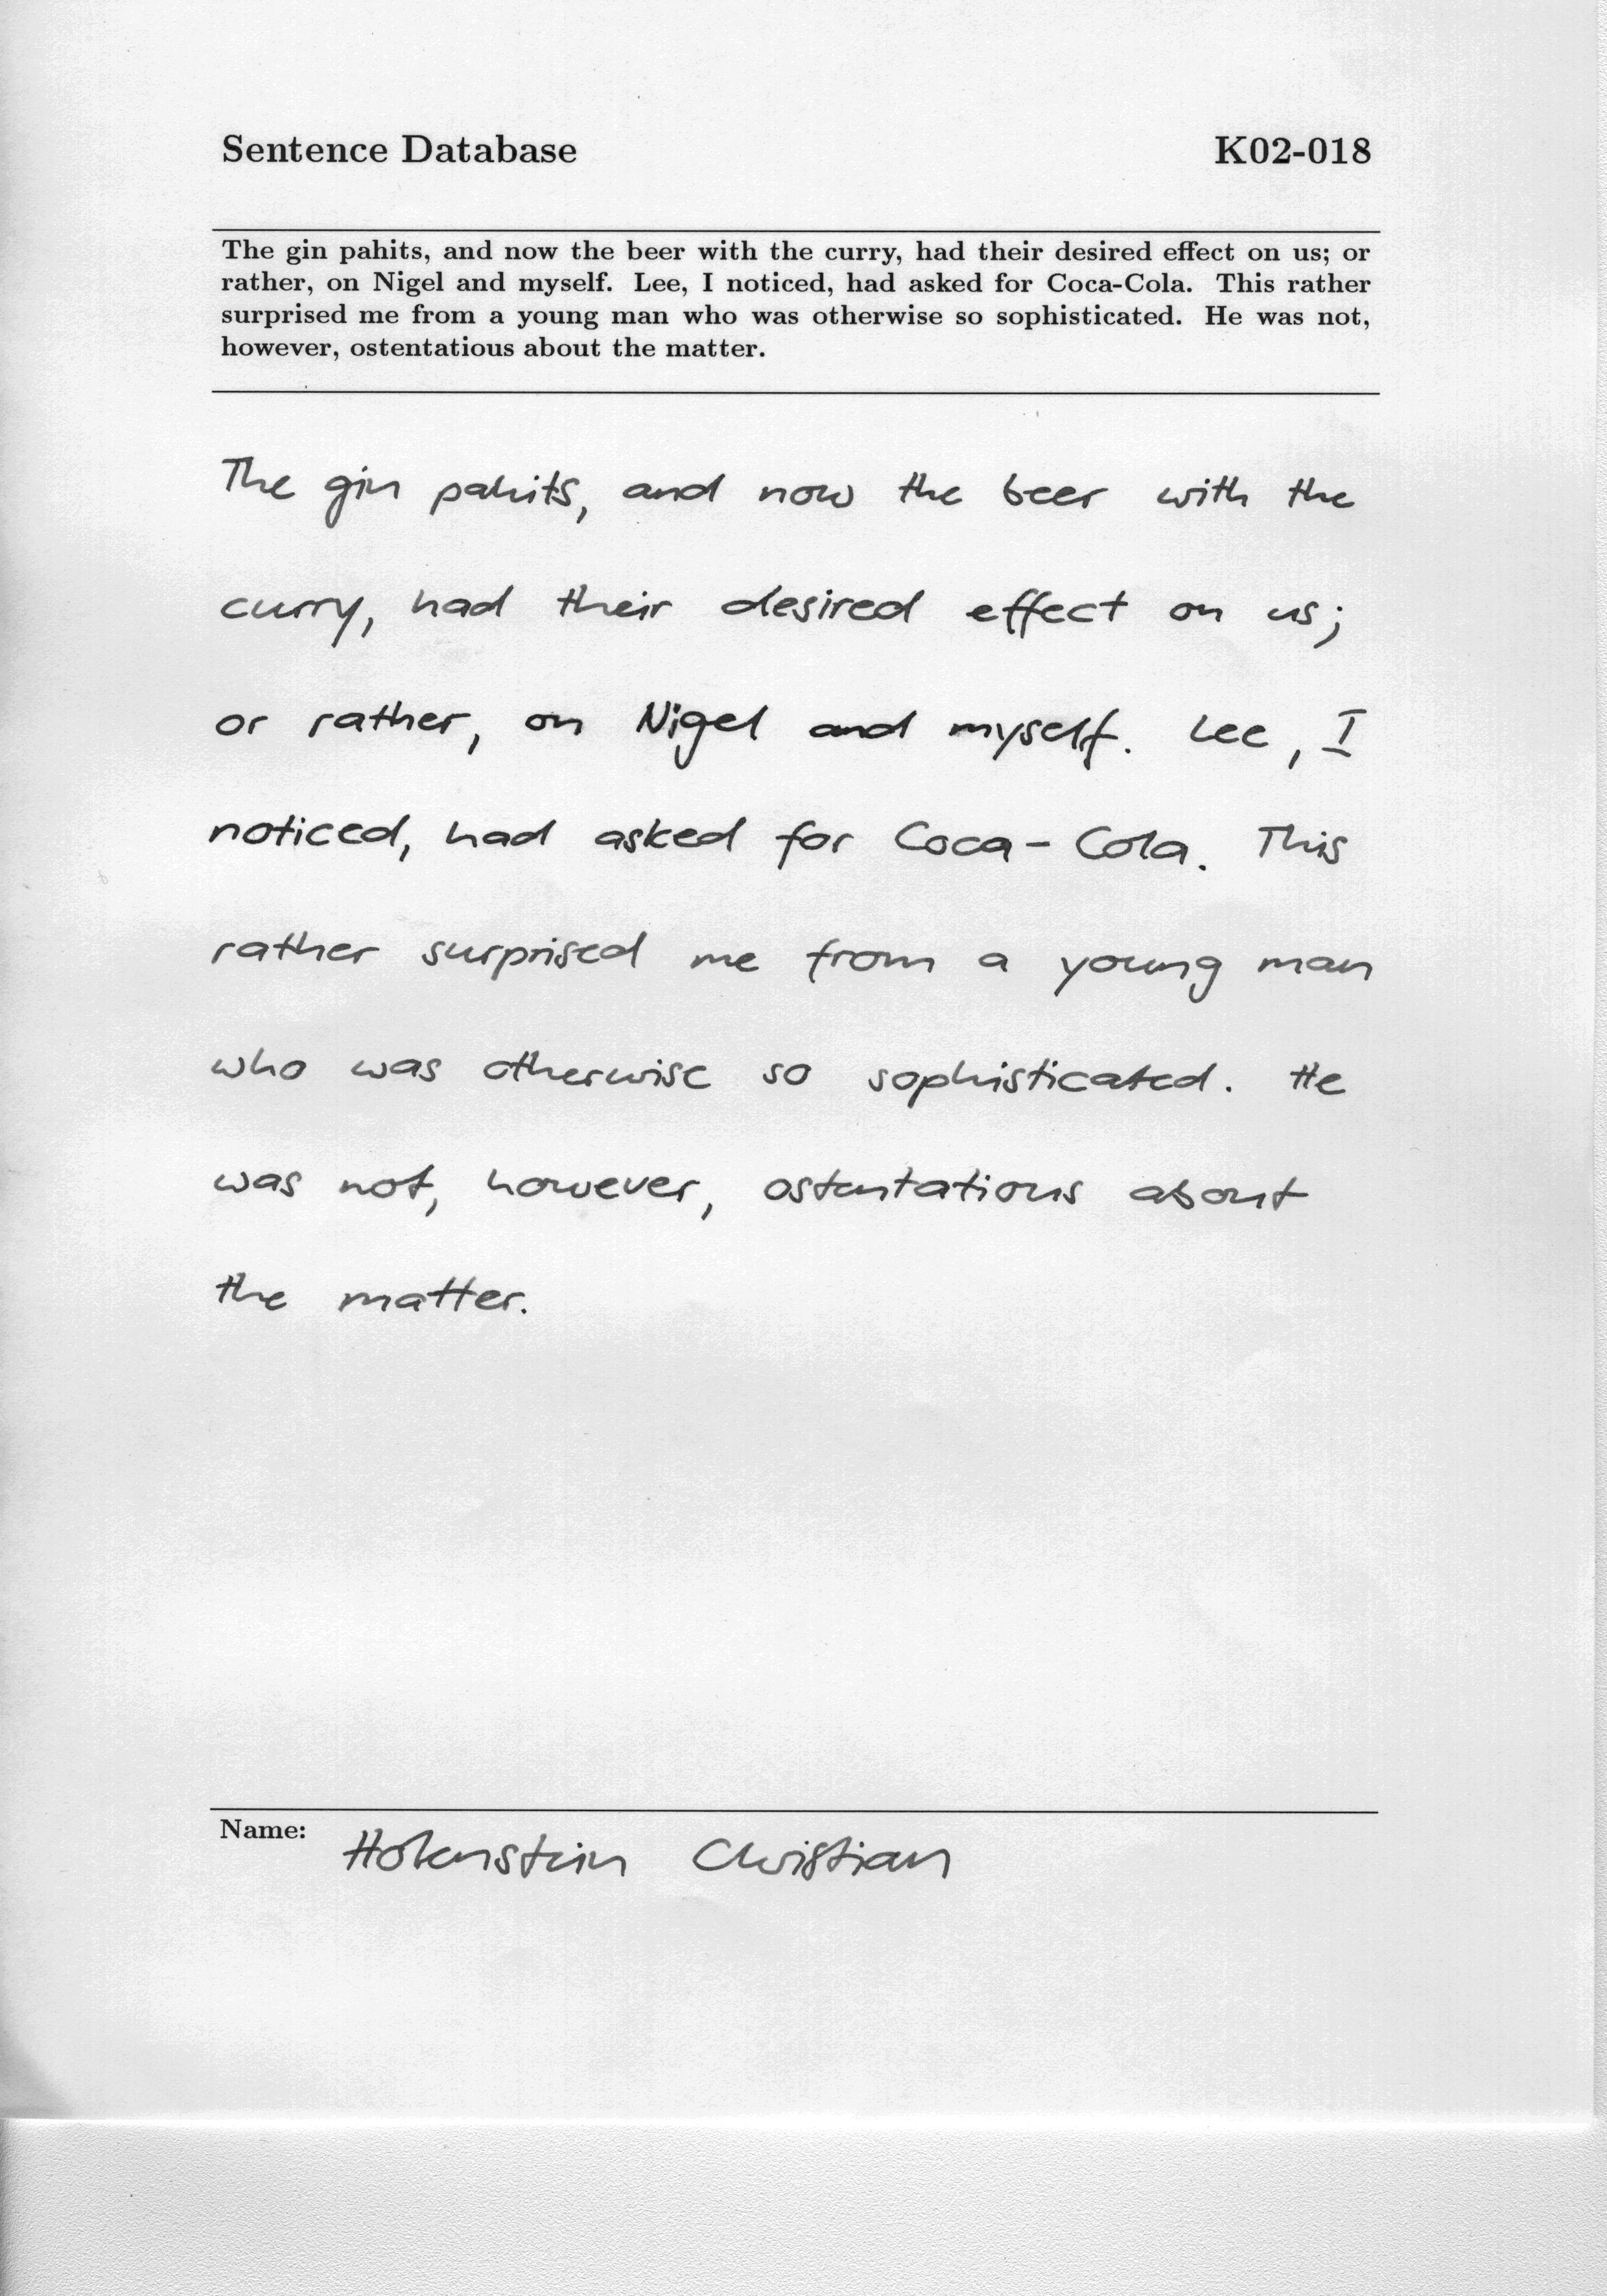 Sentence Database K02-018
The gin pahits, and now the beer with the curry, had their desired effect on us; or
rather, on Nigel and myself. Lee, I noticed, had asked for Coca-Cola. This rather
surprised me from a young man who was otherwise so sophisticated. He was not,
however, ostentatious about the matter.
The gin pahits, and now the beer with the
curry, had their desired effect on us;
or rather, on Nigel and myself. Lee, I
noticed, had asked for Coca-Cola. This
rather surprised me from a young man
who was otherwise so sophisticated. He
was not, however, ostentatious about
the matter.
Name: Holenstein Christian